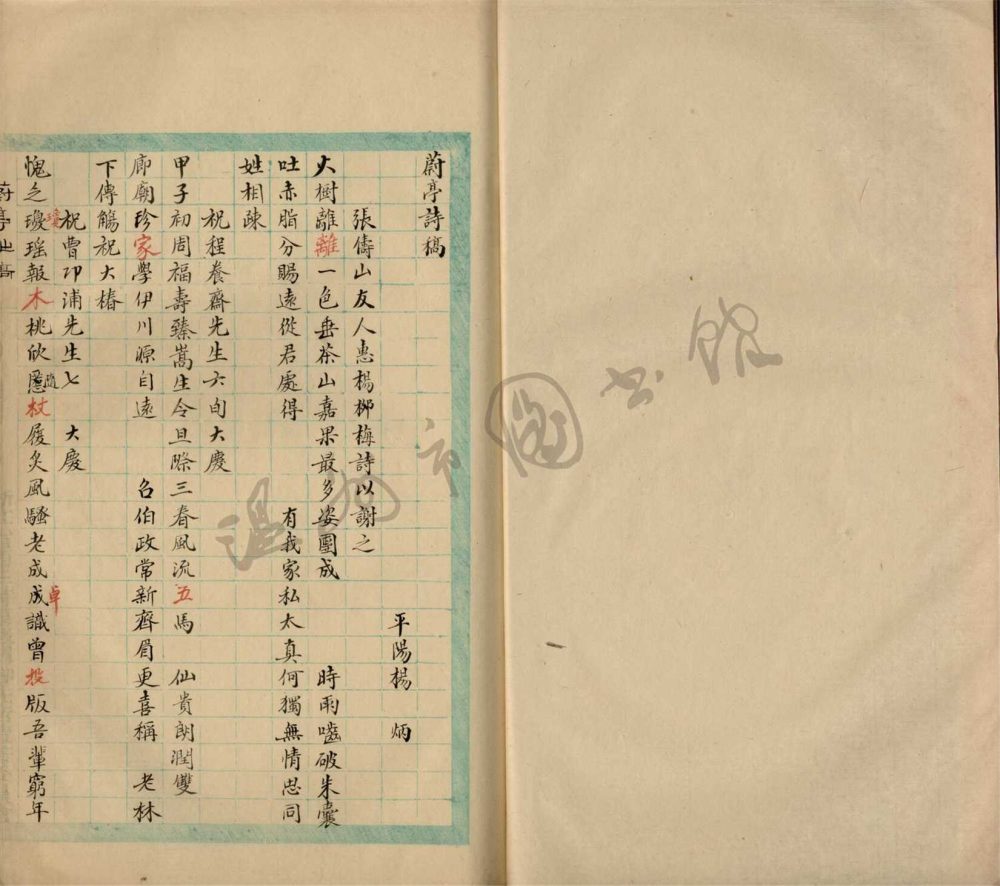 蔚亭詩稿
平陽楊　炳
張儔山友人惠楊梛梅詩以謝之
大樹離離一色垂茶山嘉果最多姿團成　時雨嚙破朱囊
吐赤脂分賜遠從君處得　有我家私太真何獨無情忠同
姓相疎
祝程養齋先生六旬大慶
甲子初周福壽臻嵩生令旦際三春風流五馬　仙貴朗潤雙
廊廟珍家學伊川源自遠　召伯政常新齊眉更喜稱　老林
下傳觴祝大椿
祝曹卬浦先生七　大慶
愧乏瓊瑤報木桃欣隨杖履炙風騷老成成識曾投版吾輩窮年
瓊
隨
卓
溫州市圖書館